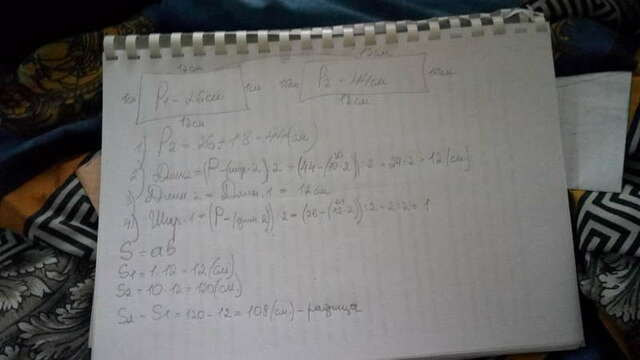 12см 12см
1см P1 - 26см 1см 10см P2 - 44см 10см
12см 12см
1) P2 = 26 + 18 = 44(см)
2) Длин2 = (P - (шир·2)):2 = (44 - (10·2)):2 = 24:2 = 12 (см)
3) Длин. 2 = Длин. 1 = 12см
4) Шир.1 = (P - (длин.2)):2 = (26 - (12·2)):2 = 2:2 = 1
S = ab
S1 = 1·12 = 12(см)
S2 = 10·12 = 120(см)
S2 - S1 = 120 - 12 = 108(см) - разница